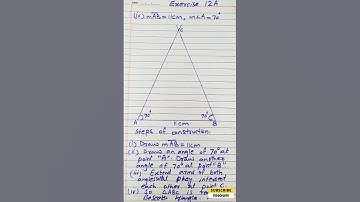 Exercise 12A
(iv) mAB = 11cm, m∠A = 70°
C
70° 70°
A 11cm B
steps of construction:
(i) Draw mAB = 11cm
(ii) Draw an angle of 70° at
point "A". Draw another
angle of 70° at point "B"
(iii) Extend arms of both
angles till they intersect
each other at point C.
(iv) So ΔABC is the
Triangle.
SUBSCRIBE